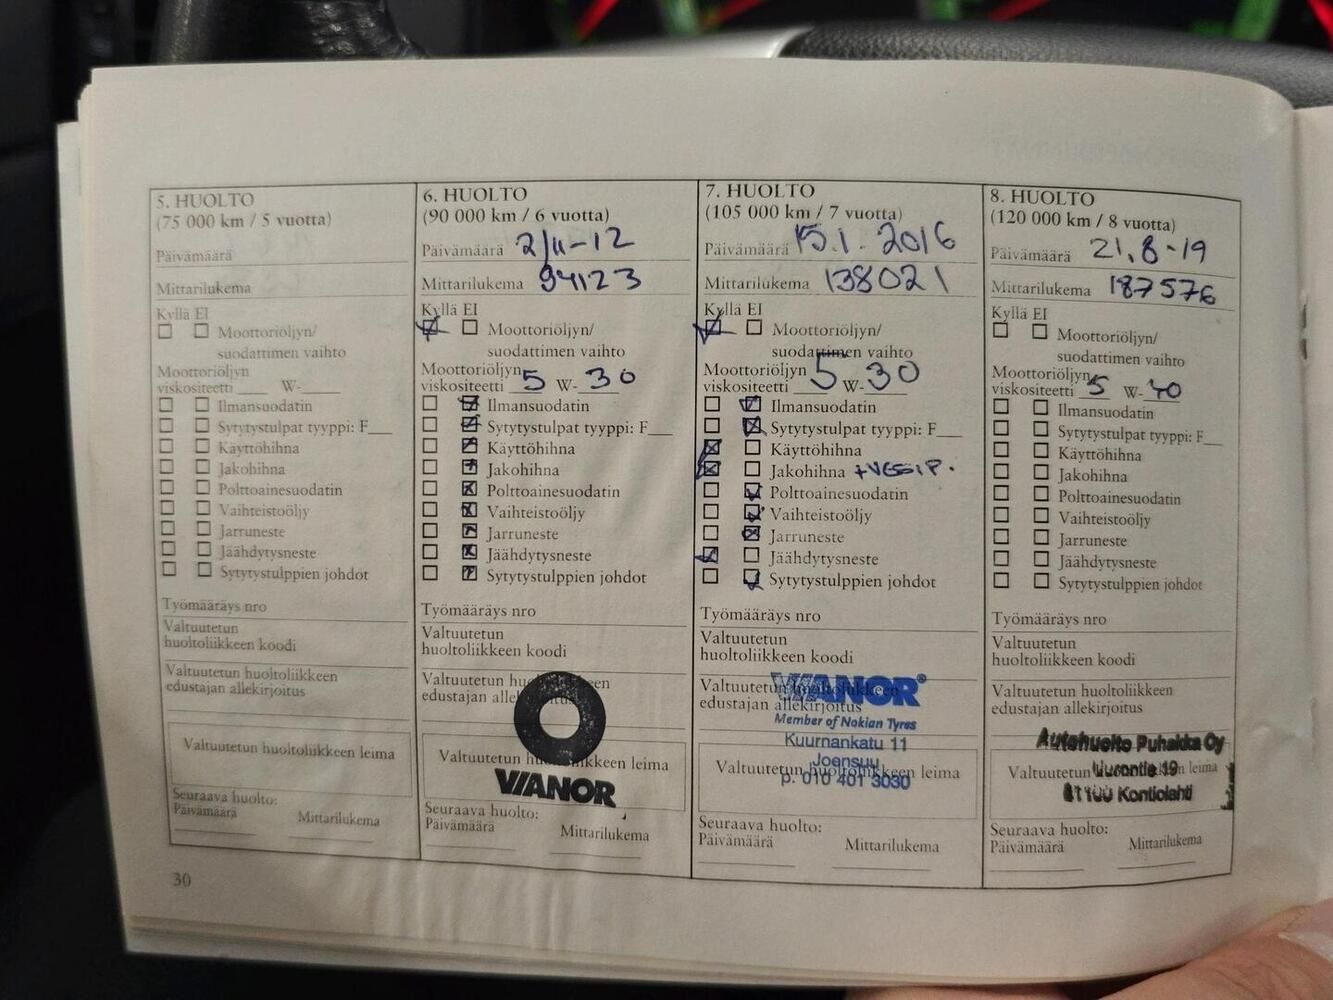 5. HUOLTO
(75 000 km / 5 vuotta)
Päivämäärä
Mittarilukema
Kyllä EI
Moottoriöljyn/
suodattimen vaihto
Moottoriöljyn
viskositeetti W-
Ilmansuodatin
Sytytystulpat tyyppi: F
Käyttöhihna
Jakohihna
Polttoainesuodatin
Vaihteistoöljy
Jarruneste
Jäähdytysneste
Sytytystulppien johdot
Työmääräys nro
Valtuutetun
huoltoliikkeen koodi
Valtuutetun huoltoliikkeen
edustajan allekirjoitus
Valtuutetun huoltoliikkeen leima
Seuraava huolto:
Päivämäärä Mittarilukema
30
6. HUOLTO
(90 000 km / 6 vuotta)
Päivämäärä 2/11-12
Mittarilukema 94123
Kyllä EI
Moottoriöljyn/
suodattimen vaihto
Moottoriöljyn
viskositeetti 5 W-30
Ilmansuodatin
Sytytystulpat tyyppi: F
Käyttöhihna
Jakohihna
Polttoainesuodatin
Vaihteistoöljy
Jarruneste
Jäähdytysneste
Sytytystulppien johdot
Työmääräys nro
Valtuutetun
huoltoliikkeen koodi
Valtuutetun huoltoliikkeen
edustajan allekirjoitus
Valtuutetun huoltoliikkeen leima
VIANOR
Seuraava huolto:
Päivämäärä Mittarilukema
7. HUOLTO
(105 000 km / 7 vuotta)
Päivämäärä 15.1.2016
Mittarilukema 138021
Kyllä EI
Moottoriöljyn/
suodattimen vaihto
Moottoriöljyn
viskositeetti 5 W-30
Ilmansuodatin
Sytytystulpat tyyppi: F
Käyttöhihna
Jakohihna +VESIP.
Polttoainesuodatin
Vaihteistoöljy
Jarruneste
Jäähdytysneste
Sytytystulppien johdot
Työmääräys nro
Valtuutetun
huoltoliikkeen koodi
Valtuutetun huoltoliikkeen
edustajan allekirjoitus
VIANOR®
Member of Nokian Tyres
Kuurnankatu 11
Joensuu
p. 010 401 3030
Valtuutetun huoltoliikkeen leima
Seuraava huolto:
Päivämäärä Mittarilukema
8. HUOLTO
(120 000 km / 8 vuotta)
Päivämäärä 21.8-19
Mittarilukema 187576
Kyllä EI
Moottoriöljyn/
suodattimen vaihto
Moottoriöljyn
viskositeetti 5 W-40
Ilmansuodatin
Sytytystulpat tyyppi: F
Käyttöhihna
Jakohihna
Polttoainesuodatin
Vaihteistoöljy
Jarruneste
Jäähdytysneste
Sytytystulppien johdot
Työmääräys nro
Valtuutetun
huoltoliikkeen koodi
Valtuutetun huoltoliikkeen
edustajan allekirjoitus
Autohuolto Puhakka Oy
Valtuutetun leima
81100 Kontiolahti
Seuraava huolto:
Päivämäärä Mittarilukema